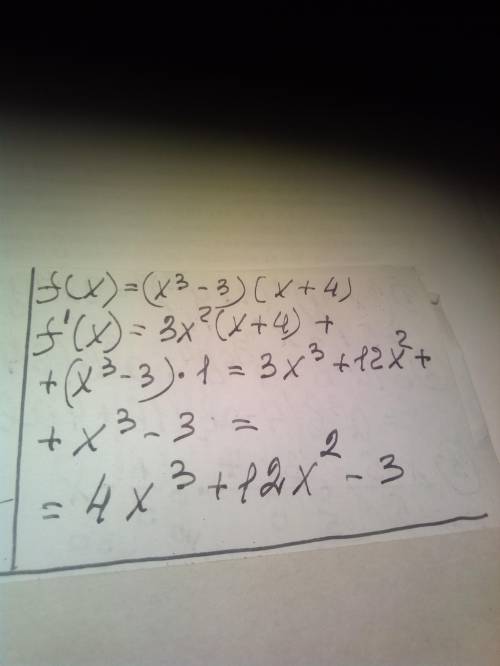 f(x)=(x³-3)(x+4)
f'(x)=3x²(x+4)+
+(x³-3)·1=3x³+12x²+
+x³-3=
=4x³+12x²-3